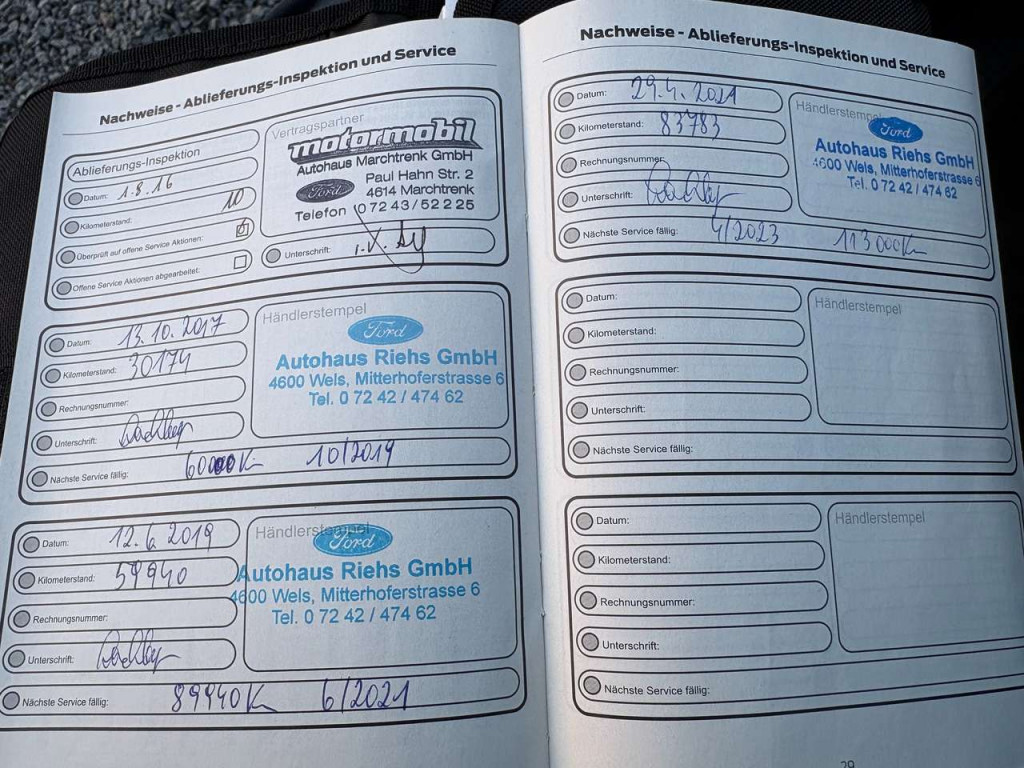 Nachweise - Ablieferungs-Inspektion und Service
Ablieferungs-Inspektion
Datum: 1.8.16
Kilometerstand: 10
Überprüft auf offene Service Aktionen:
Offene Service Aktionen abgearbeitet:
Vertragspartner
motormobil
Autohaus Marchtrenk GmbH
Ford
Paul Hahn Str. 2
4614 Marchtrenk
Telefon 0 72 43 / 52 2 25
Unterschrift:
Datum: 13.10.2017
Kilometerstand: 30174
Rechnungsnummer:
Unterschrift:
Nächste Service fällig: 60000K 10/2019
Händlerstempel
Ford
Autohaus Riehs GmbH
4600 Wels, Mitterhoferstrasse 6
Tel. 0 72 42 / 474 62
Datum: 12.6.2019
Kilometerstand: 59940
Rechnungsnummer:
Unterschrift:
Nächste Service fällig: 89940K 6/2021
Händlerstempel
Ford
Autohaus Riehs GmbH
4600 Wels, Mitterhoferstrasse 6
Tel. 0 72 42 / 474 62
Nachweise - Ablieferungs-Inspektion und Service
Datum: 29.4.2021
Kilometerstand: 83783
Rechnungsnummer:
Unterschrift:
Nächste Service fällig: 4/2023 113000K
Händlerstempel
Ford
Autohaus Riehs GmbH
4600 Wels, Mitterhoferstrasse 6
Tel. 0 72 42 / 474 62
Datum:
Kilometerstand:
Rechnungsnummer:
Unterschrift:
Nächste Service fällig:
Händlerstempel
Datum:
Kilometerstand:
Rechnungsnummer:
Unterschrift:
Nächste Service fällig:
Händlerstempel
29